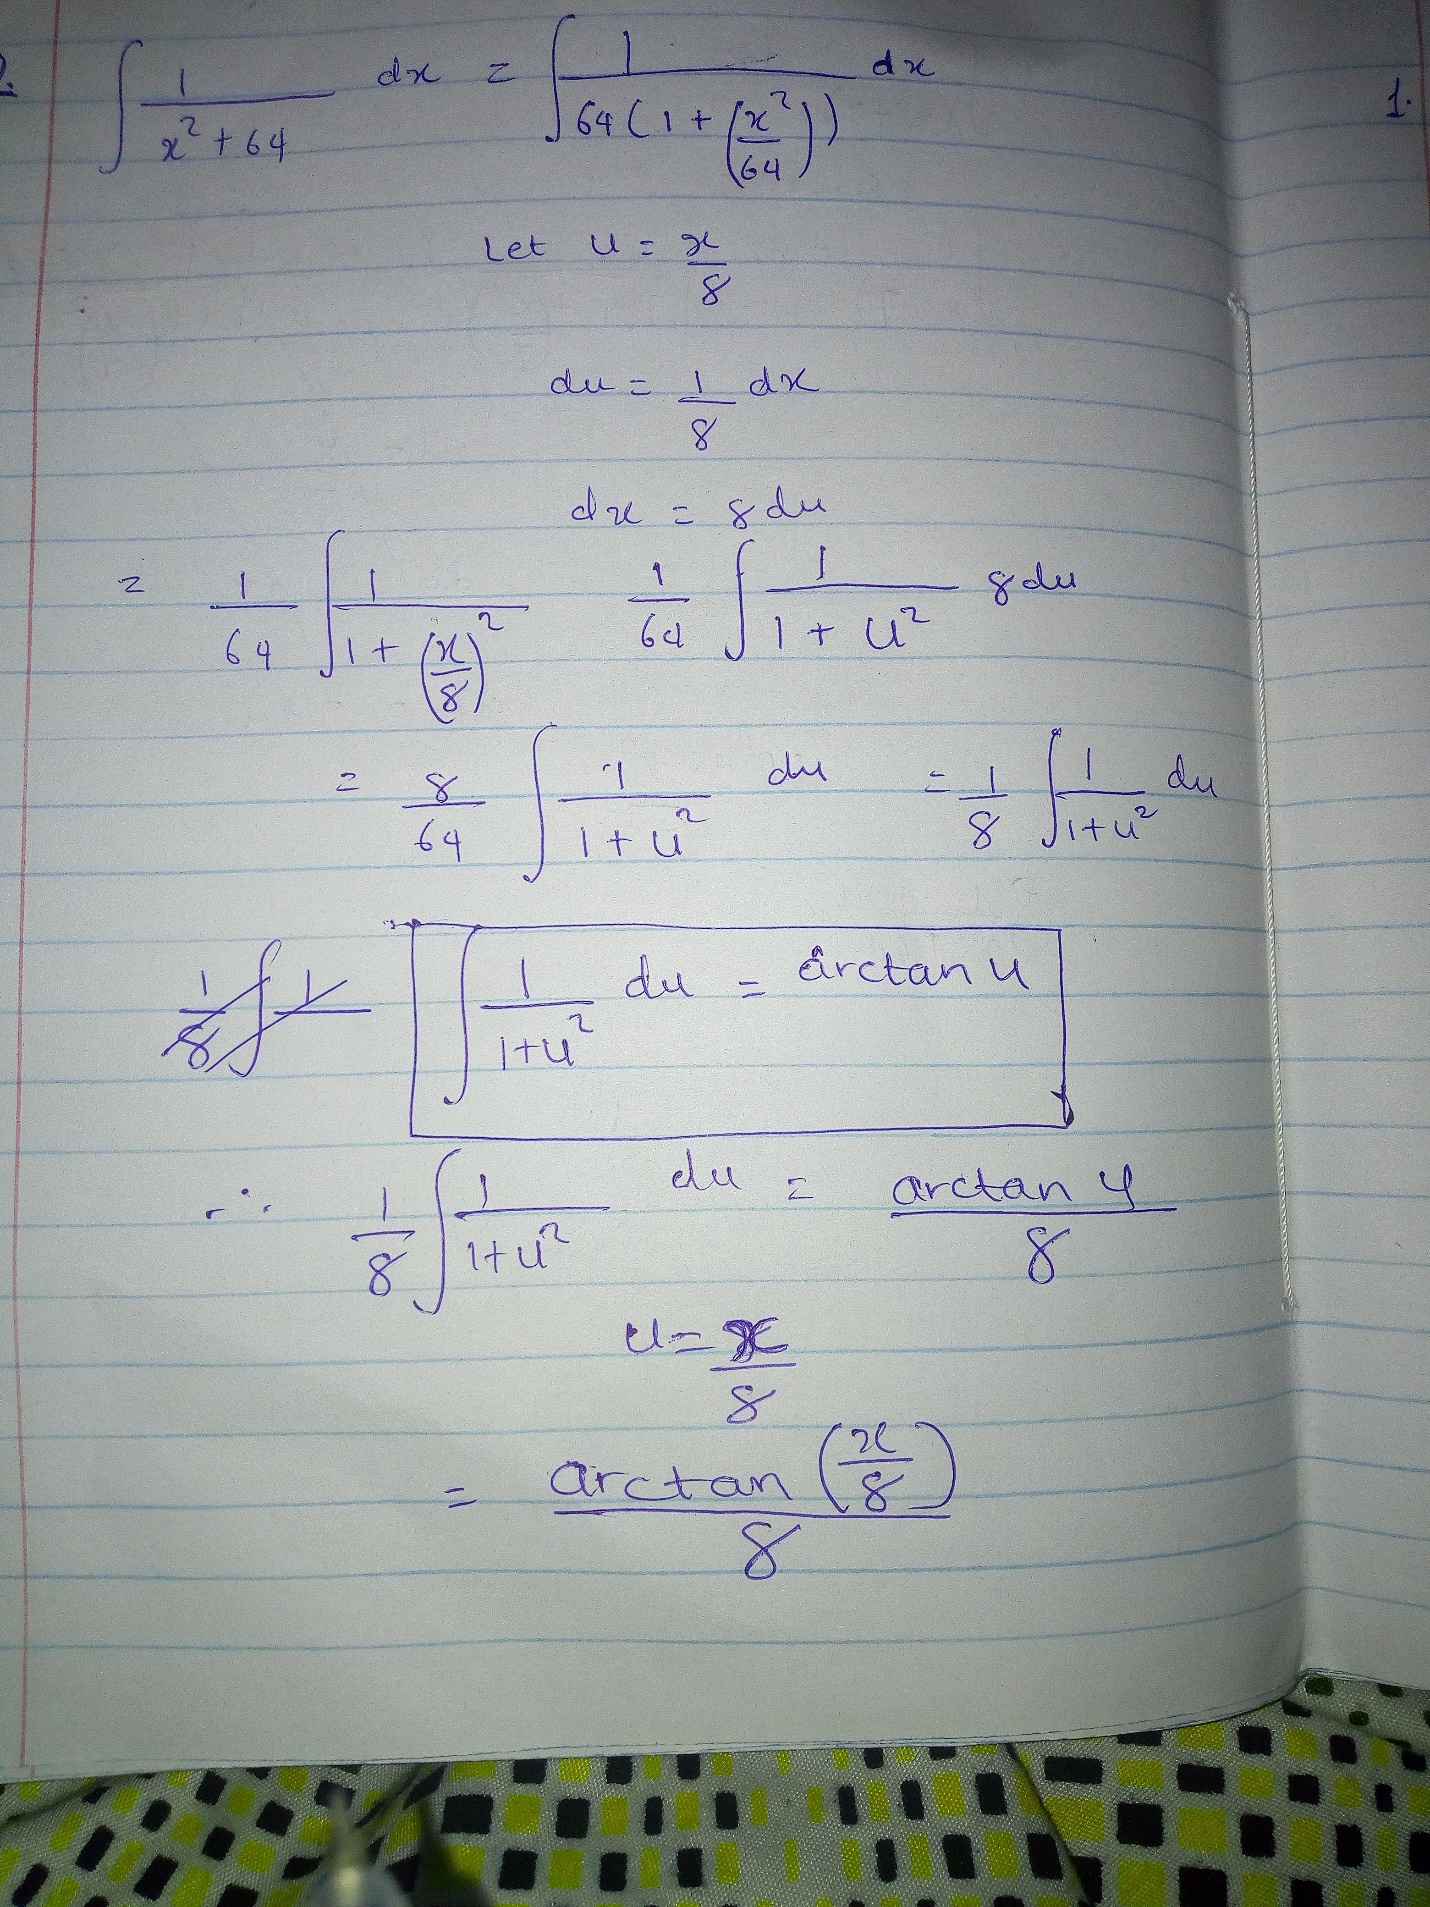 2. ∫ 1/(x² + 64) dx = ∫ 1/(64(1 + (x²/64))) dx
1.
Let u = x/8
du = 1/8 dx
dx = 8 du
= 1/64 ∫ 1/(1 + (x/8)²) 1/64 ∫ 1/(1 + u²) 8 du
= 8/64 ∫ 1/(1 + u²) du = 1/8 ∫ 1/(1+u²) du
1/8 ∫ 1/ ∫ 1/(1+u²) du = arctan u
∴ 1/8 ∫ 1/(1+u²) du = arctan u/8
u = x/8
= arctan (x/8)/8